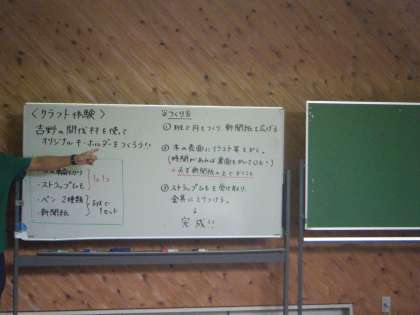 〈クラフト体験〉
吉野の間伐材を使って
オリジナルキーホルダーをつくろう!!
輪切り
・ストラップひも
1人1コ
・ペン 2種類
・新聞紙
1セット
☆つくり方
① 班で円をつくり、新聞紙を広げる
② 木の表面にイラスト等をかく。
(時間があれば裏面もかいてOK!)
※必ず新聞紙の上でかくこと
③ ストラップひもを受け取り、
金具にとりつける。
↓
完成!!